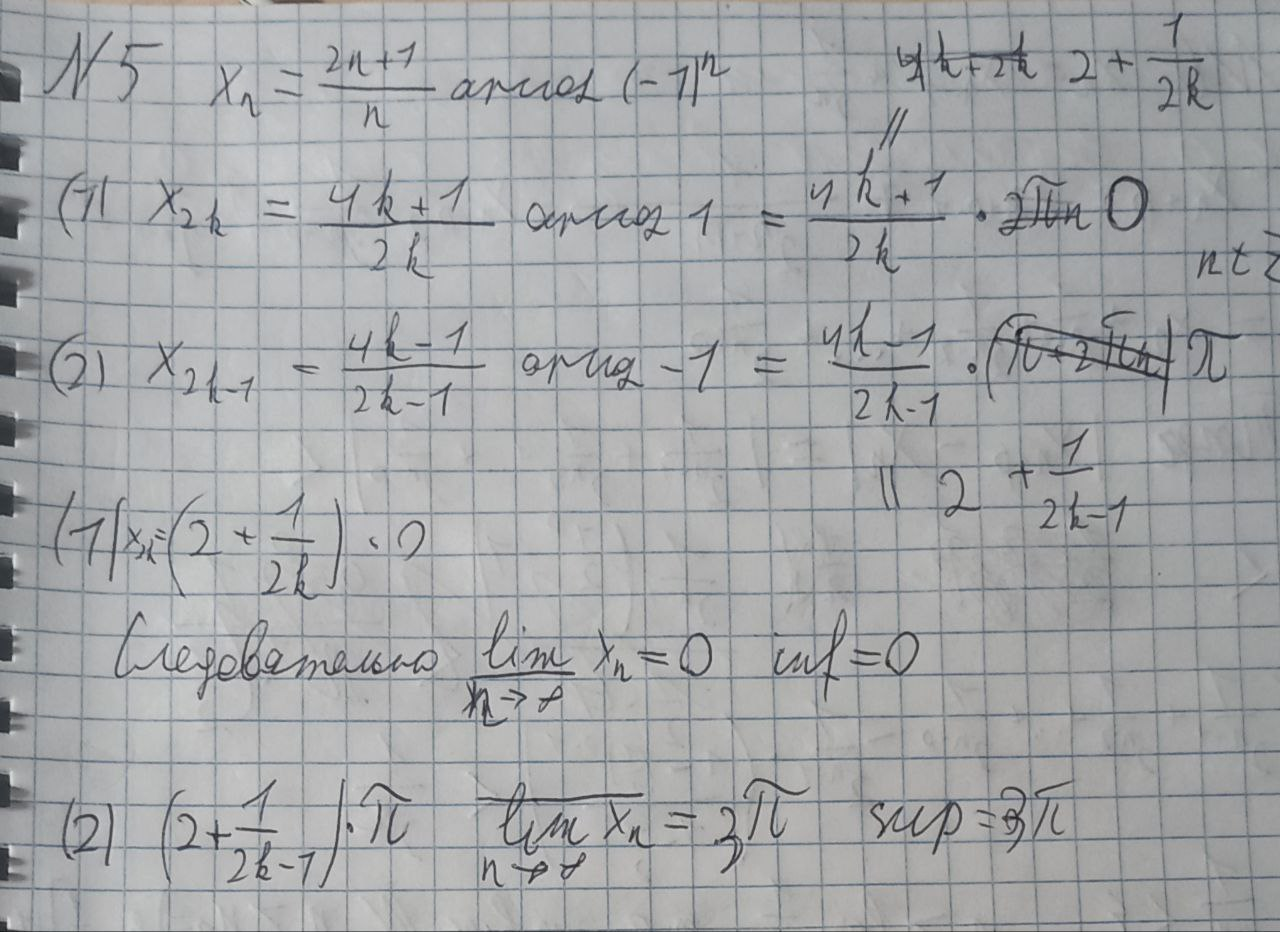 N5 xₙ = (2n+1)/n arccos (-1)ⁿ 2 + 1/(2k)
(1) x₂ₖ = (4k+1)/(2k) arccos 1 = (4k+1)/(2k) · 0 n ∈ Z
(2) x₂ₖ₋₁ = (4k-1)/(2k-1) arccos -1 = (4k-1)/(2k-1) · π
|| 2 + 1/(2k-1)
(1) x₂ₖ = (2 + 1/(2k)) · 0
Следовательно lim xₙ = 0 inf = 0
n→∞
(2) (2 + 1/(2k-1)) · π lim xₙ = 3π sup = 3π
n→∞